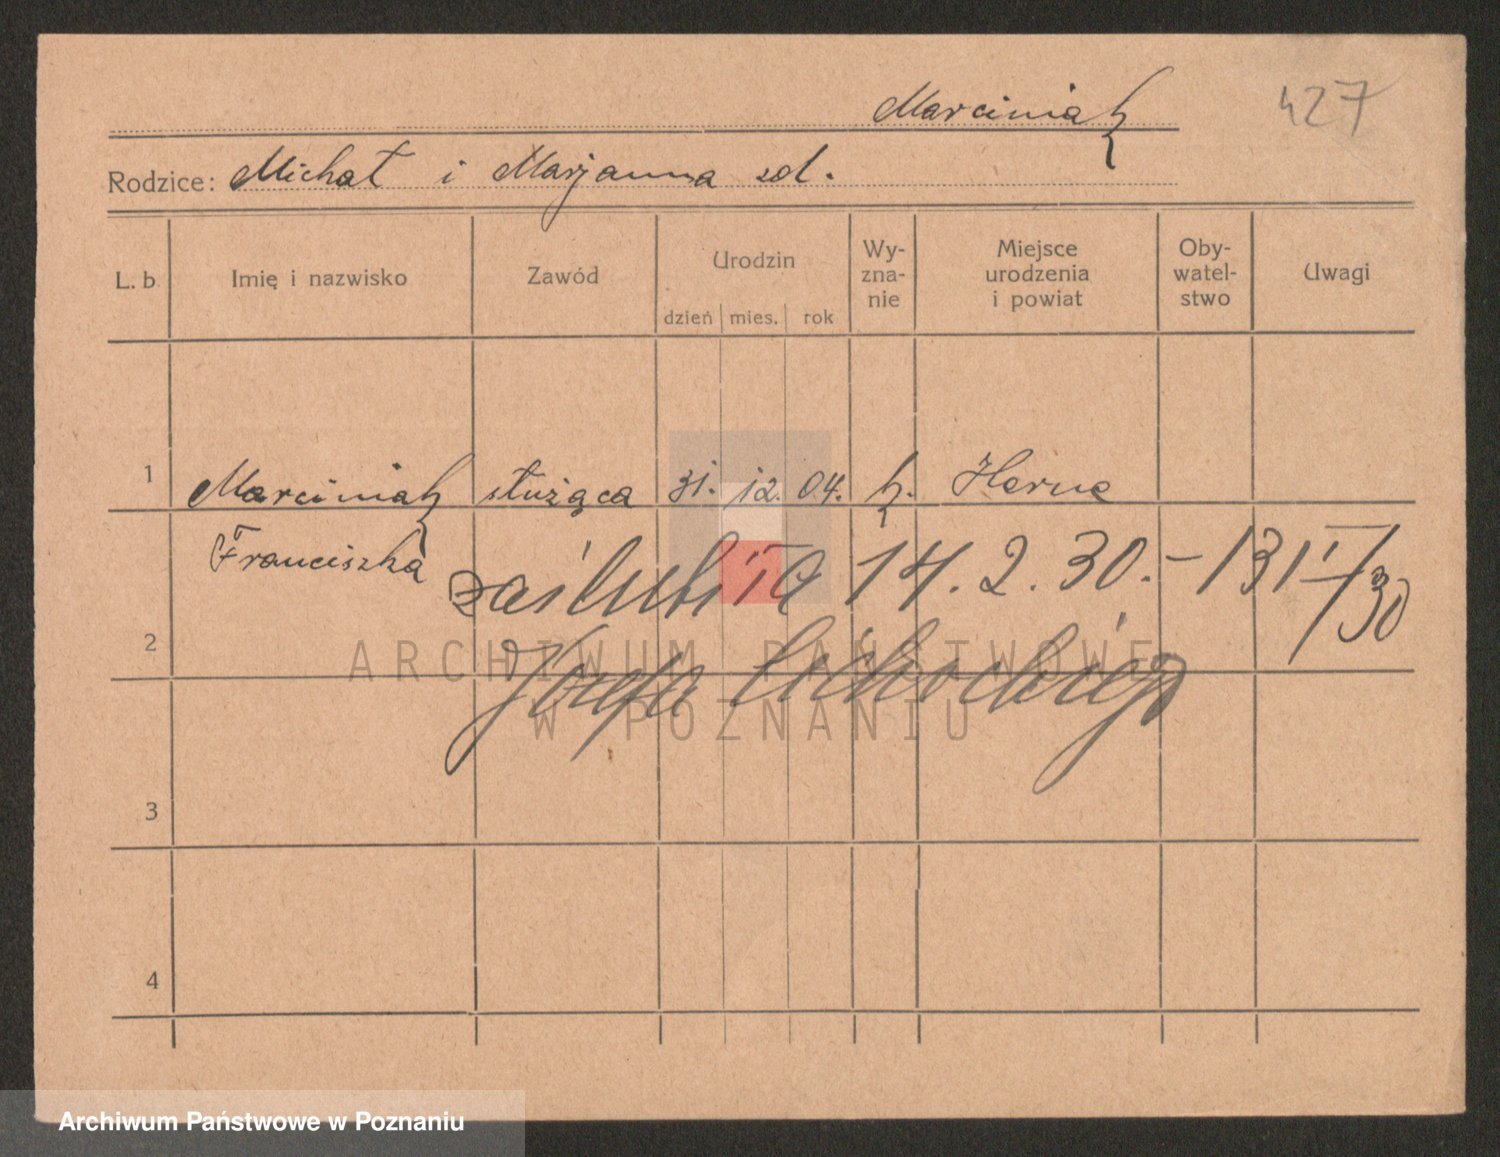 Marciniak
427
Rodzice: Michał i Marjanna zd.
L. b
Imię i nazwisko
Zawód
Urodzin
dzień mies. rok
Wy-
zna-
nie
Miejsce
urodzenia
i powiat
Oby-
watel-
stwo
Uwagi
1 Marciniak służąca 31. 12. 04. k. Herne
Franciszka
zaślubiła 14. 2. 30. – 131 II/30
2
Józefa Cichockiego
3
4
ARCHIWUM PAŃSTWOWE
W POZNANIU
Archiwum Państwowe w Poznaniu